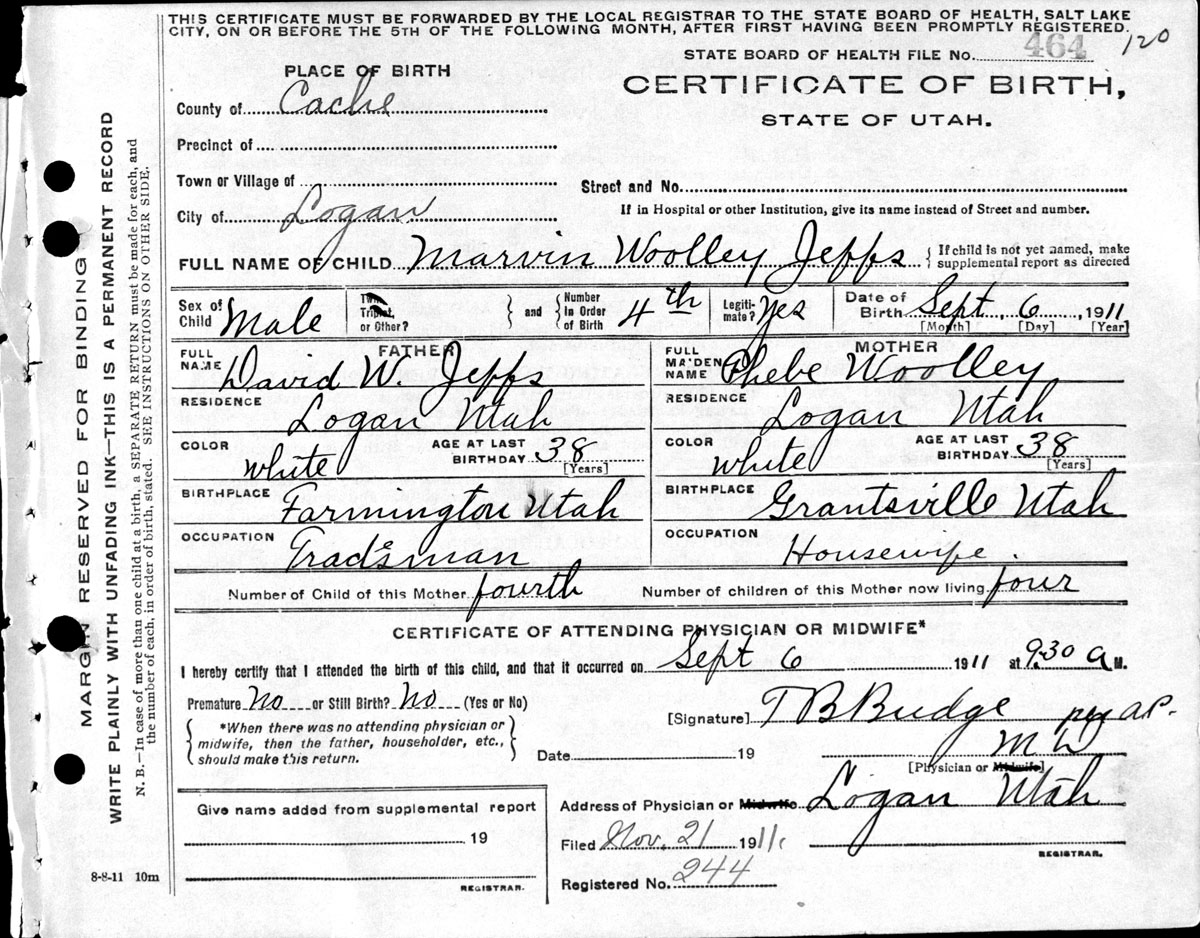 THIS CERTIFICATE MUST BE FORWARDED BY THE LOCAL REGISTRAR TO THE STATE BOARD OF HEALTH, SALT LAKE
CITY, ON OR BEFORE THE 5TH OF THE FOLLOWING MONTH, AFTER FIRST HAVING BEEN PROMPTLY REGISTERED.
120
STATE BOARD OF HEALTH FILE No. 464
PLACE OF BIRTH
CERTIFICATE OF BIRTH,
STATE OF UTAH.
County of Cache
Precinct of
Town or Village of
Street and No.
City of Logan
If in Hospital or other Institution, give its name instead of Street and number.
FULL NAME OF CHILD Marvin Woolley Jeffs { If child is not yet named, make supplemental report as directed
Sex of Child Male Twin, Triplet, or Other? } and { Number in Order of Birth 4th Legiti-mate? Yes Date of Birth Sept. 6 1911
[Month] [Day] [Year]
FATHER MOTHER
FULL NAME David W. Jeffs FULL MAIDEN NAME Phebe Woolley
RESIDENCE Logan Utah RESIDENCE Logan Utah
COLOR white AGE AT LAST BIRTHDAY 38 [Years] COLOR white AGE AT LAST BIRTHDAY 38 [Years]
BIRTHPLACE Farmington Utah BIRTHPLACE Grantsville Utah
OCCUPATION Tradsman OCCUPATION Housewife.
Number of Child of this Mother fourth Number of children of this Mother now living four
CERTIFICATE OF ATTENDING PHYSICIAN OR MIDWIFE*
I hereby certify that I attended the birth of this child, and that it occurred on Sept 6 1911 at 9.30 a M.
Premature No or Still Birth? No (Yes or No)
[Signature] T B Budge per A.P.
{ *When there was no attending physician or
midwife, then the father, householder, etc.,
should make this return. }
Date 19 M D
[Physician or Midwife]
Give name added from supplemental report
19
REGISTRAR.
Address of Physician or Midwife Logan Utah
Filed Nov. 21 1911
REGISTRAR.
Registered No. 244
8-8-11 10m
MARGIN RESERVED FOR BINDING
WRITE PLAINLY WITH UNFADING INK—THIS IS A PERMANENT RECORD
N. B.—In case of more than one child at a birth, a SEPARATE RETURN must be made for each, and
the number of each, in order of birth, stated. SEE INSTRUCTIONS ON OTHER SIDE.